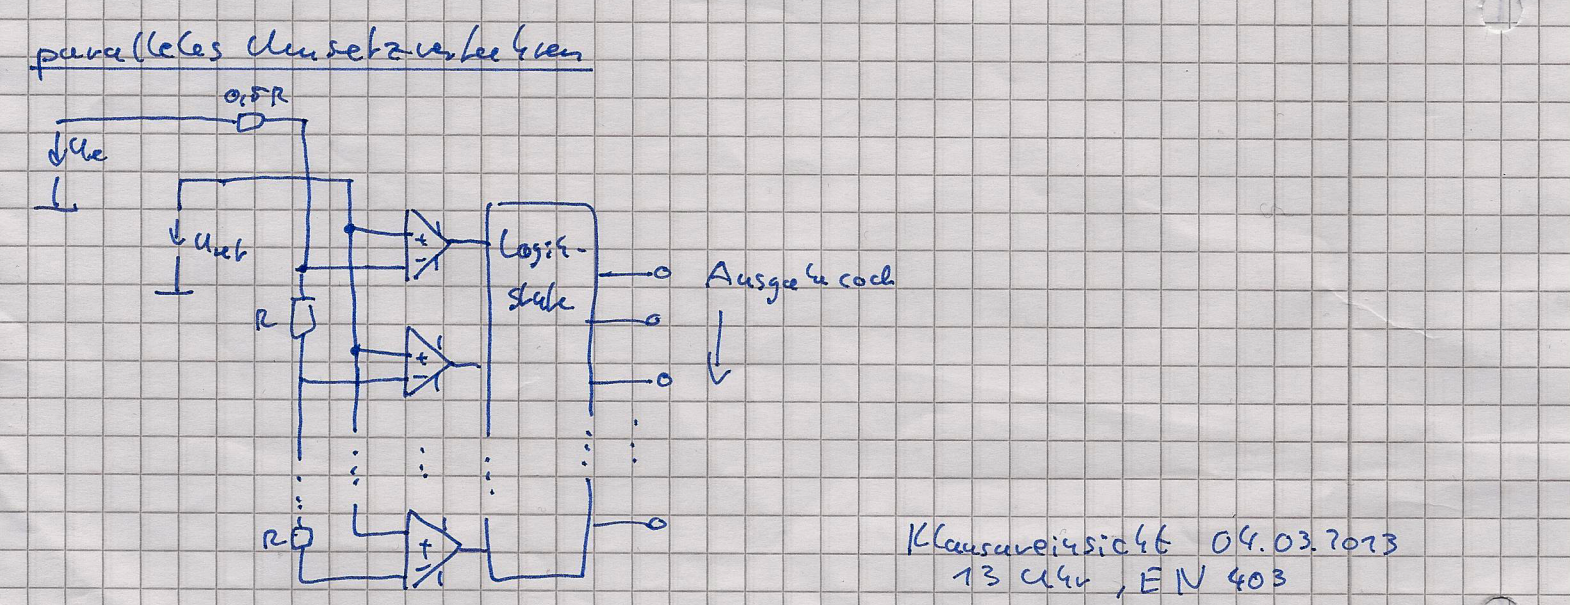 paralleles Umsetzverfahren
0,5R
Ue
Uref
+
-
Logik-
stufe
Ausgabecode
R
+
-
R
+
-
Klausureinsicht 04.03.2013
13 Uhr, EN 403